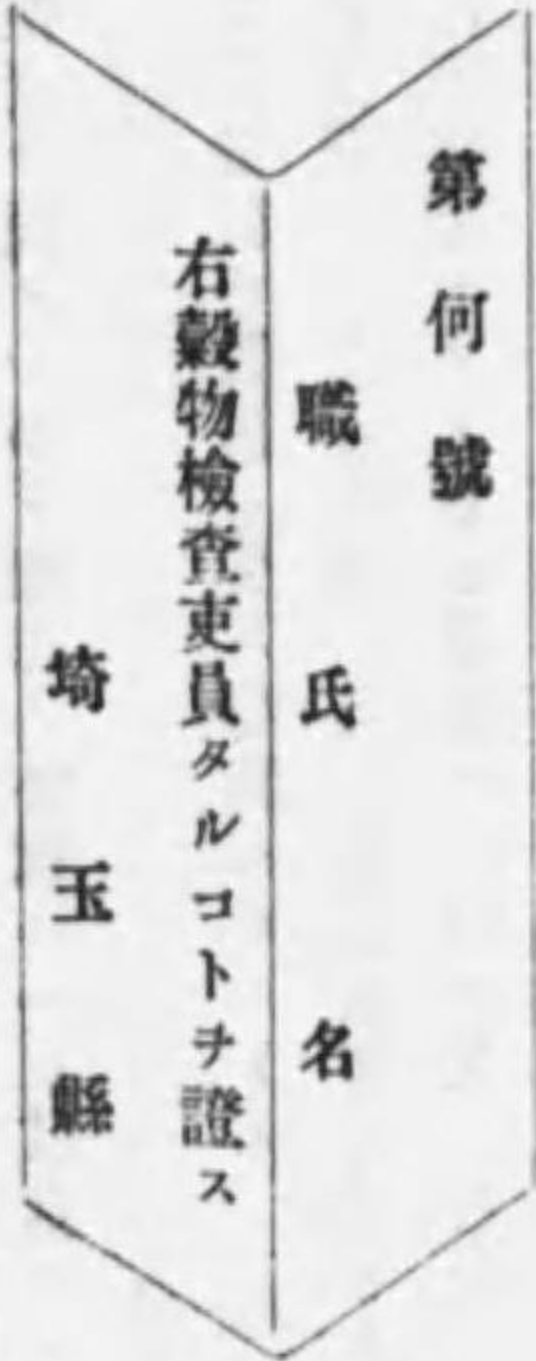 第何號
職氏名
右穀物檢査吏員タルコトヲ證ス
埼玉縣